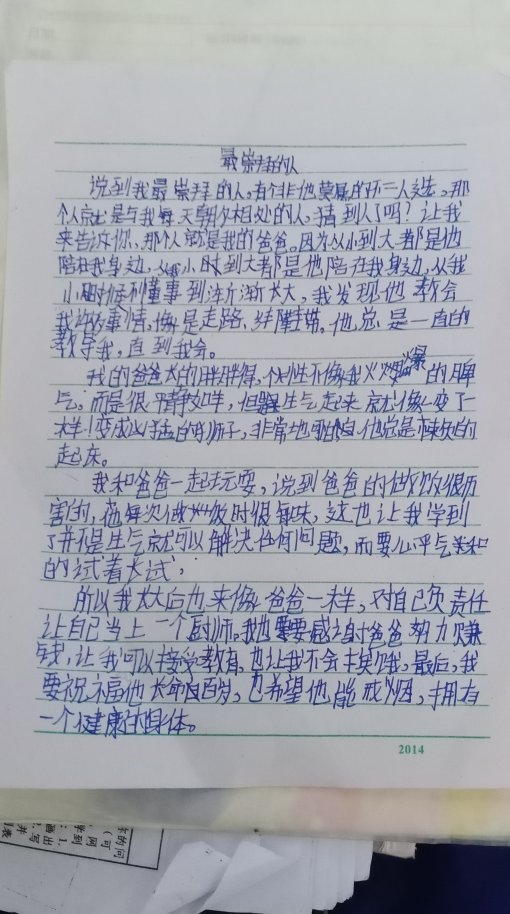 最崇拜的人
说到我最崇拜的人,有个非他莫属的不二人选。那
个人就是与我每天朝夕相处的人,猜到人了吗?让我
来告诉你,那个人就是我的爸爸。因为从小到大都是他
陪在我身边,从我小时到大都是他陪在我身边,从我
小时候不懂事到渐渐长大,我发现他教会
我许多事情,像是走路、绑鞋带。他总是一直的
教导我,直到我会。
我的爸爸长的胖胖得,个性不像我火爆的脾
气。而是很平静如羊,但生气起来就像变了一
样!变成凶猛的狮子,非常地可怕且他总是
起床。
我和爸爸一起玩耍,说到爸爸的做饭很厉
害的,他每次做饭时很有味,这也让我学到
了并不是生气就可以解决任何问题,而要心平气和
的试着尝试,
所以我长大后也来像爸爸一样,对自己负责任
让自己当上一个厨师。我也要感谢爸爸努力赚
钱,让我可以接受教育,也让我不会挨饿,最后,我
要祝福他长命百岁,也希望他能戒烟,拥有
一个健康的身体。
2014